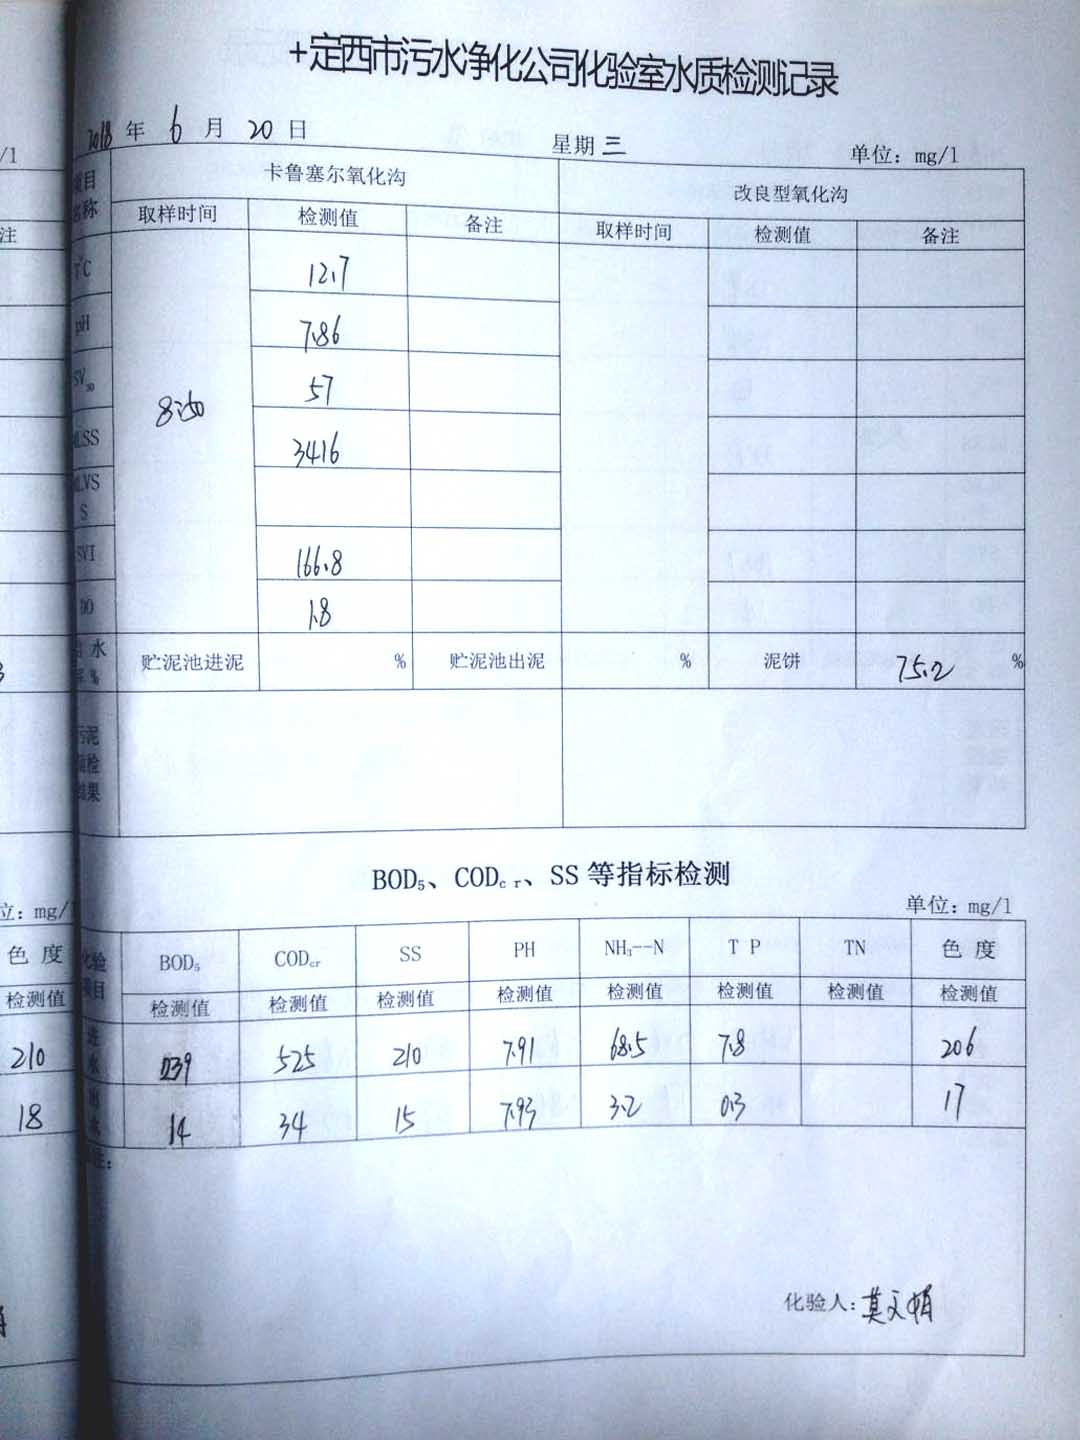 +定西市污水净化公司化验室水质检测记录
2018 年 6 月 20 日 星期 三 单位：mg/l
项目名称 卡鲁塞尔氧化沟 改良型氧化沟
取样时间 检测值 备注 取样时间 检测值 备注
T℃ 12.7
pH 7.86
SV30 57
8:50
MLSS 3416
MLVSS
SVI 166.8
DO 1.8
含水率% 贮泥池进泥 % 贮泥池出泥 % 泥饼 75.2 %
污泥镜检结果
BOD₅、CODcr、SS 等指标检测
单位：mg/l
化验项目 BOD₅ CODcr SS PH NH₃--N T P TN 色 度
检测值 检测值 检测值 检测值 检测值 检测值 检测值 检测值
进水 239 525 210 7.91 68.5 7.8 206
出水 14 34 15 7.93 3.2 0.3 17
注：
化验人：莫文娟
/l
注
位：mg/
色 度
检测值
210
18